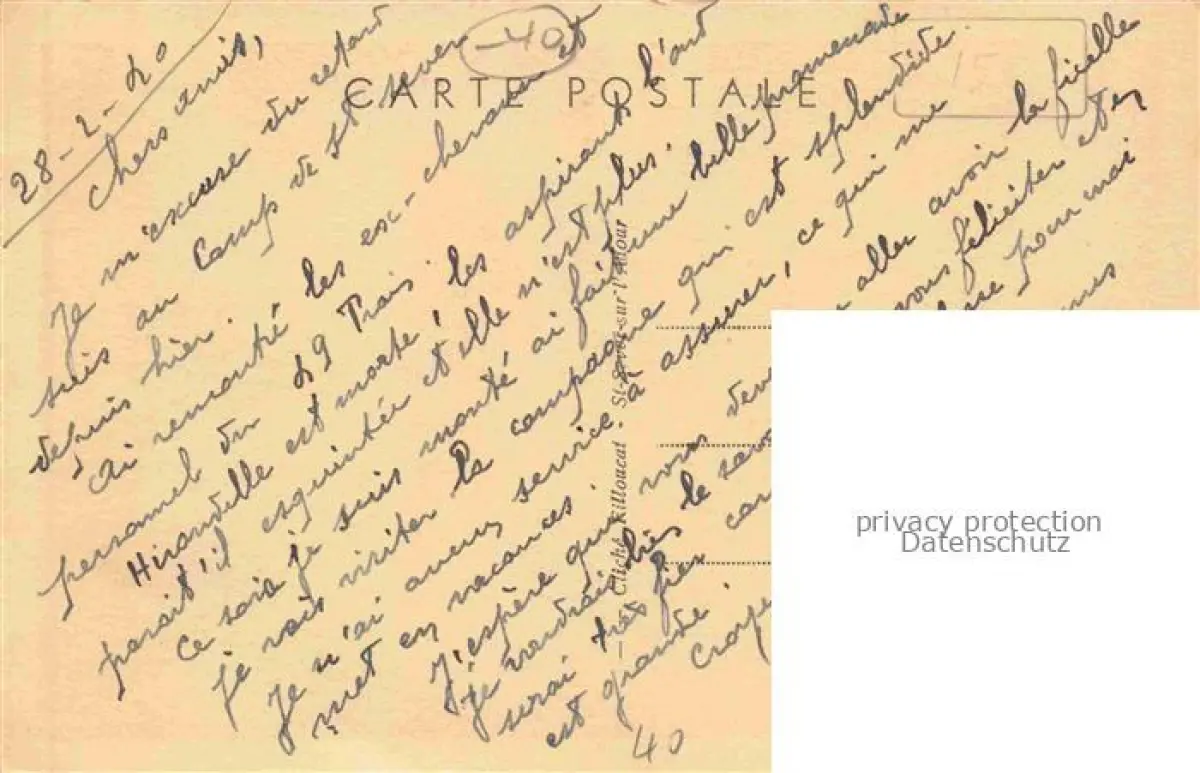 28-2-40
-40
CARTE POSTALE
15
Chers amis,
Je m'excuse du retard
suis au Camp de St Sever
depuis hier.
ai remonté les ex- chevaux et
personnel du 29 Train.
Hirondelle est morte! les aspirants l'ont
parait'il esquintée et elle n'est plus.
Ce soir je suis monté ai fait une belle promenade
je vais visiter la campagne qui est splendide.
Je n'ai aucun service à assurer, ce qui me
met en vacances.
J'espère que vous aller avoir la ficelle
je voudrais bien le vous féliciter et en
serai très fier car pour moi
est grande.
Croye
40
Cliché Villoucat. St-Sever-sur-l'Adour
privacy protection
Datenschutz